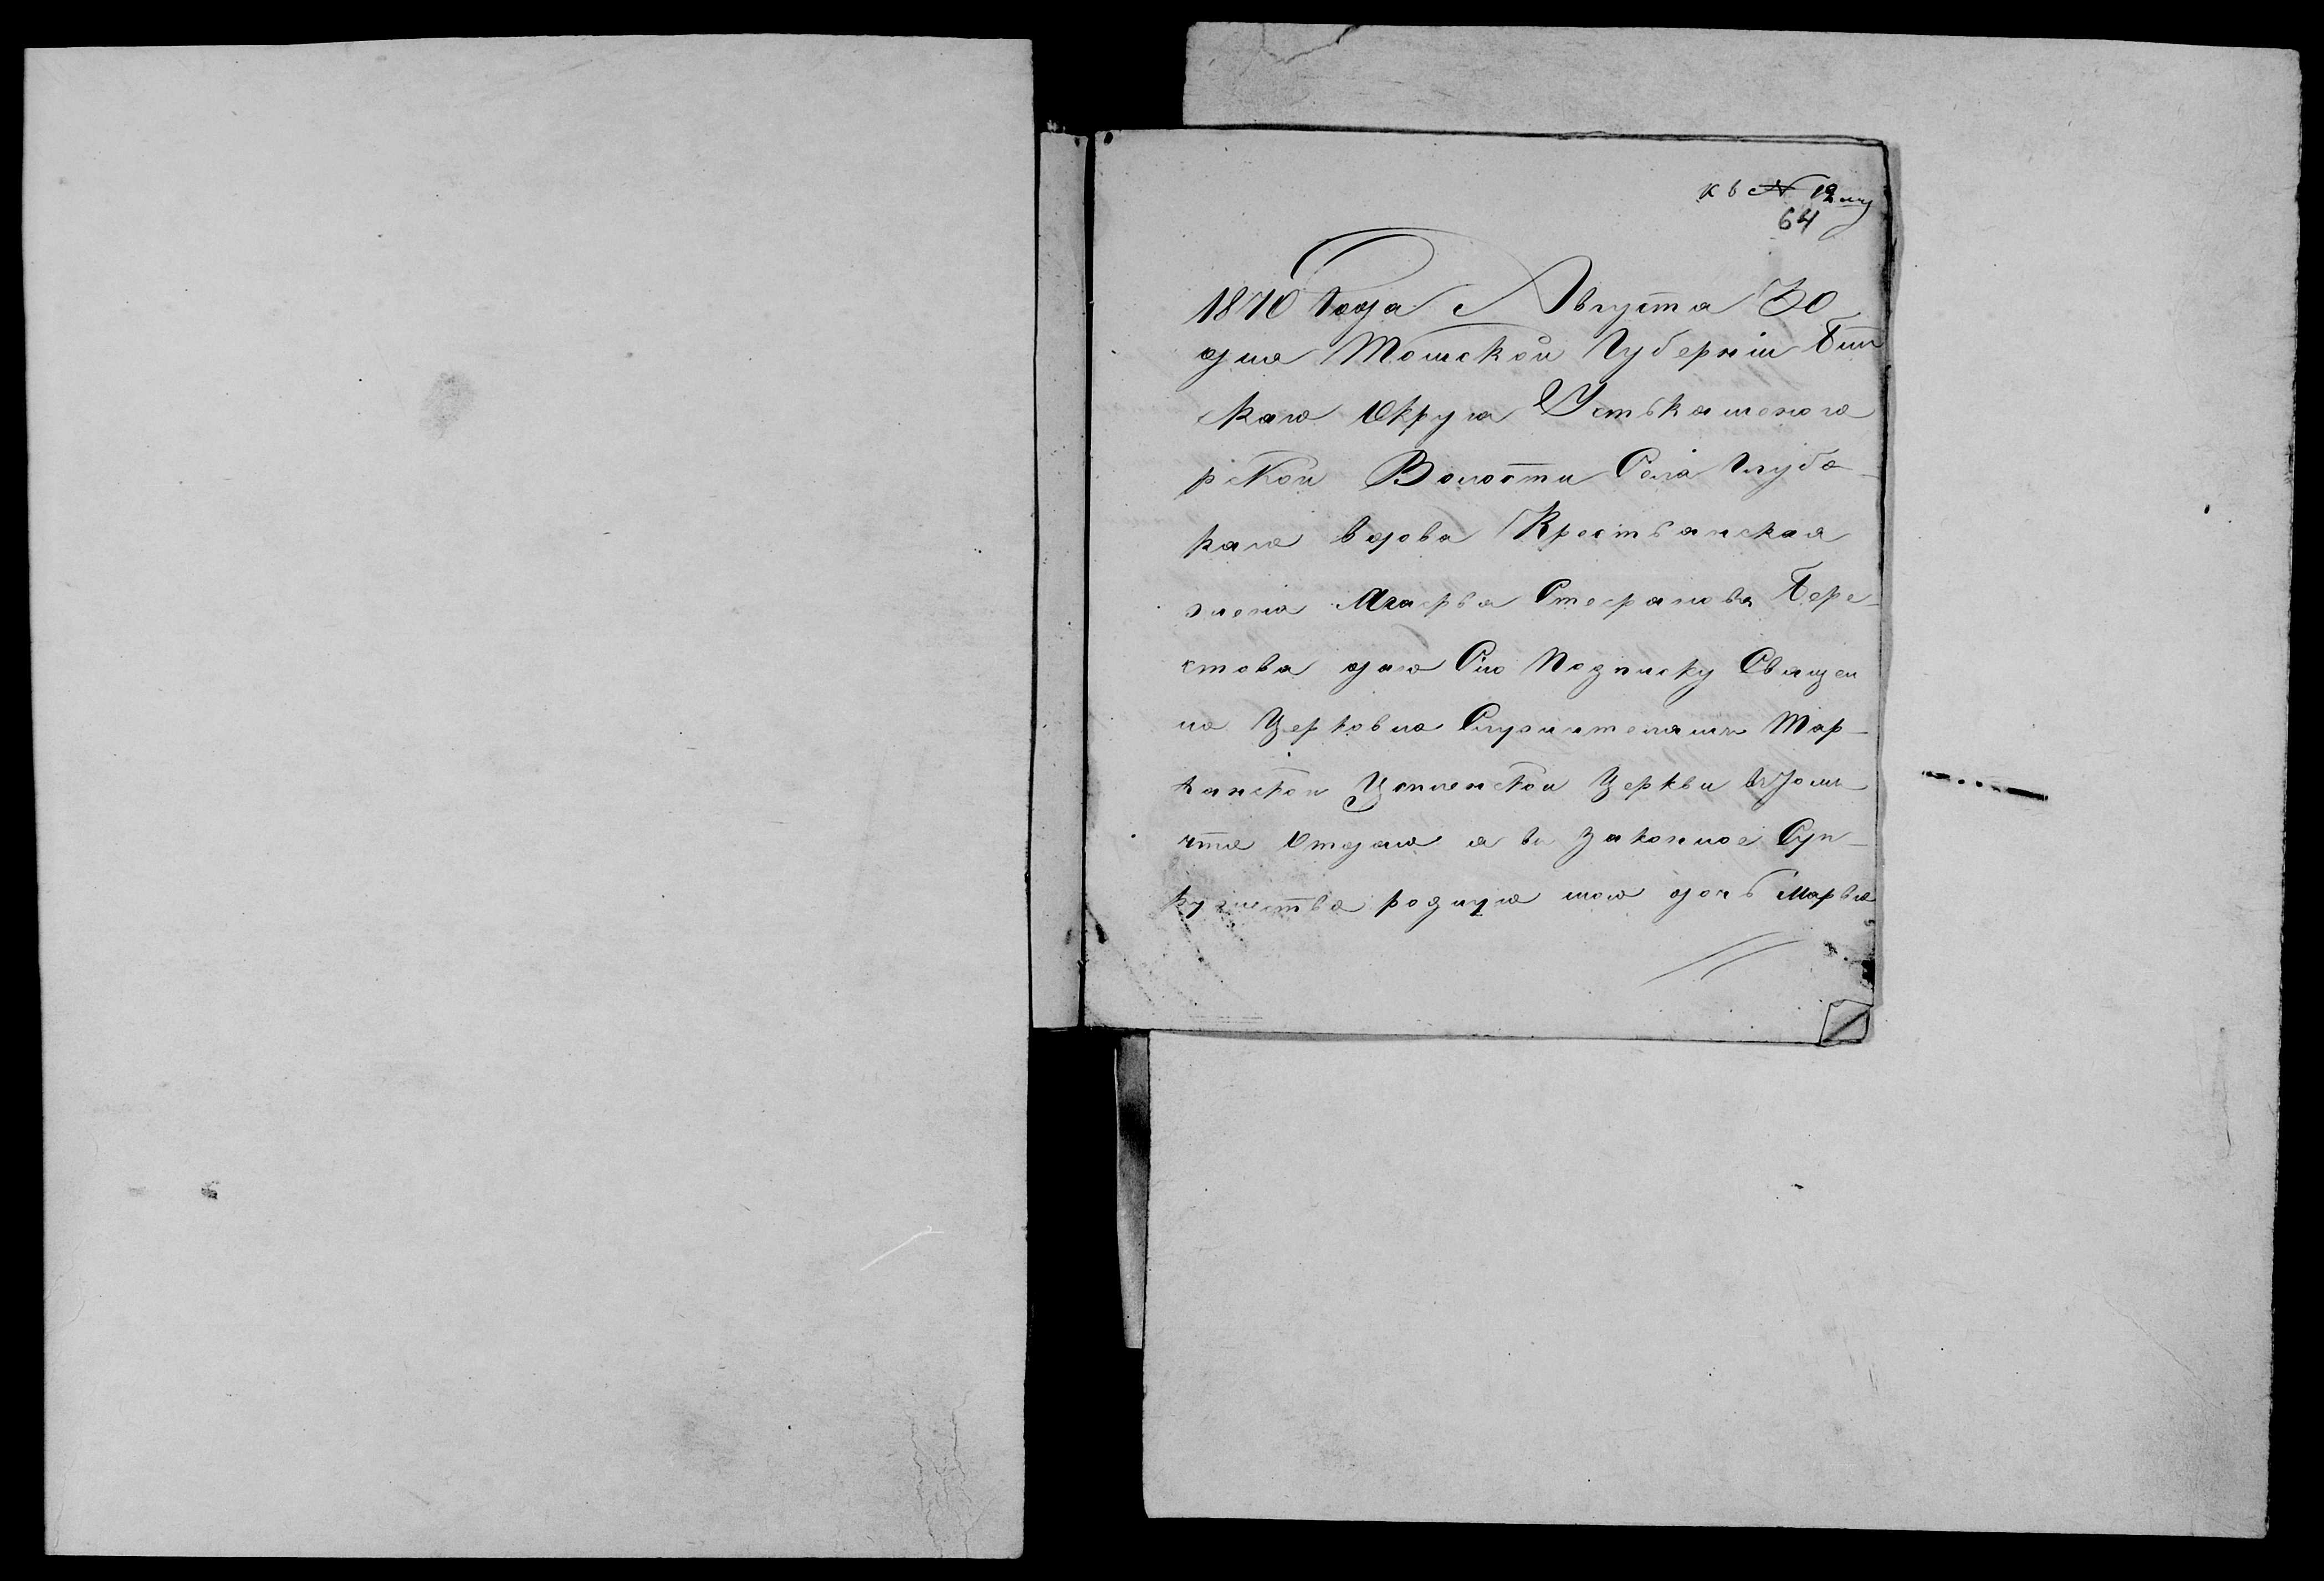 кв № 12му
64
1870 Года Августа 30
дня Томской Губерніи Бии
скаго Округа Устькаменого
рской Волости Села Глубо-
каго вдова Крестьянская
жена Марфа Стефанова Бере-
стова даю Сію Подписку Священ
но Церковно Служителямъ Тар-
ханской Успенской Церкви втомъ
что Отдаю я въ законное Суп-
ружество родную мою дочь Марвя